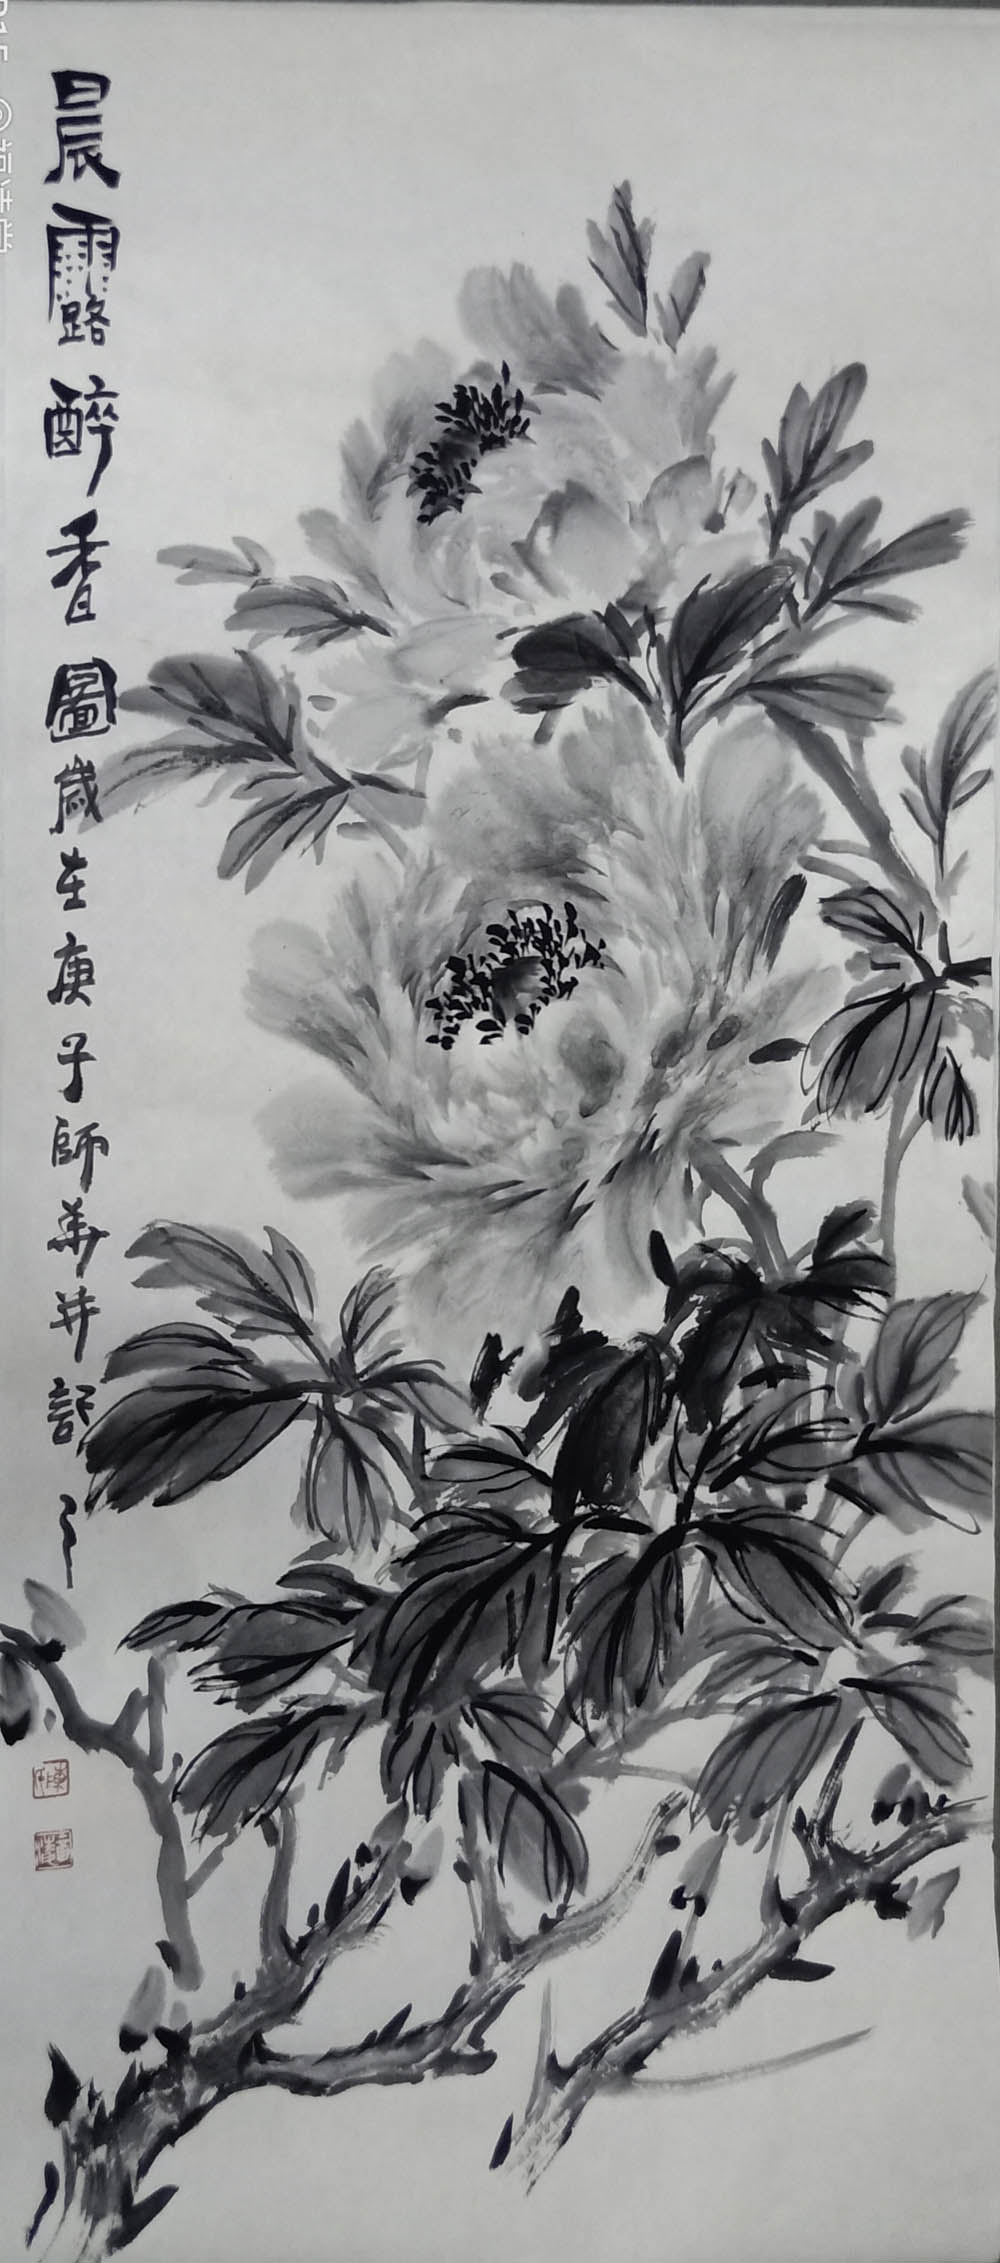 晨露醉香圖歲在庚子師華并記之